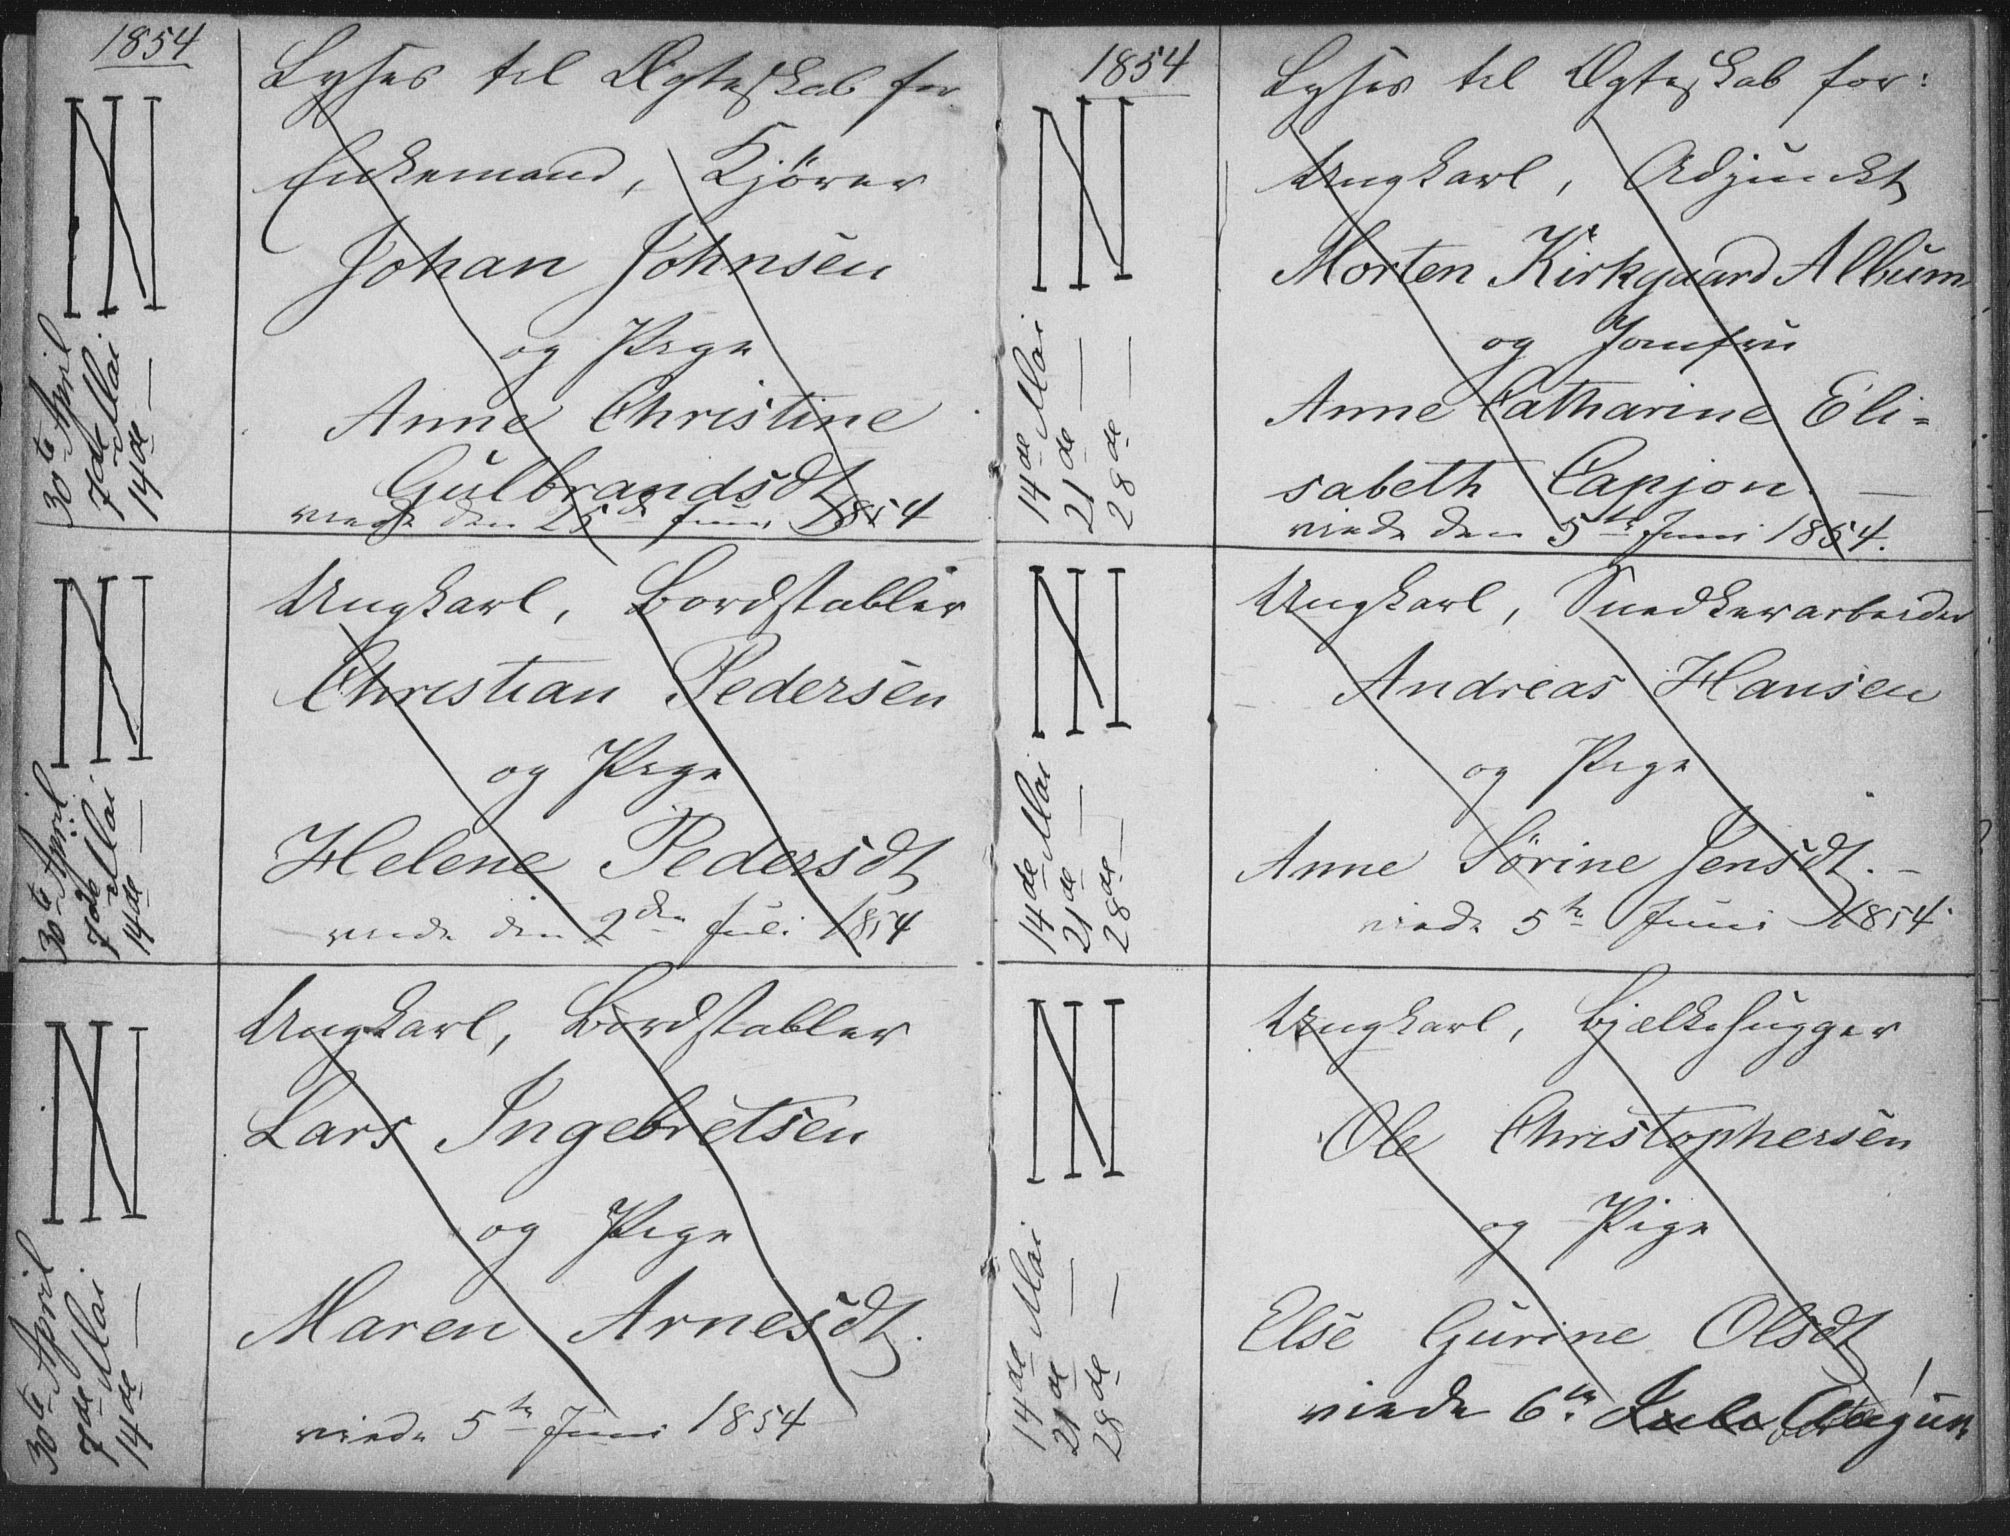 1854
Lyses til Ægteskab for
Enkemand, Kjører
Johan Johnsen
og Pige
Anne Christine
Gulbrandsdt
viede den 25de Juni 1854
30te April
7de Mai
14de —
Ungkarl, Bordstabler
Christian Pedersen
og Pige
Helene Pedersdt
viede den 2den Juli 1854
30te April
7de Mai
14de —
Ungkarl, Bordstabler
Lars Ingebretsen
og Pige
Maren Arnesdt.
viede 5te Juni 1854
30te April
7de Mai
14de —
1854
Lyses til Ægteskab for:
Ungkarl, Adjunkt
Morten Kirkgaard Album
og Jomfru
Anne Catharine Eli=
sabeth Capjon. —
viede den 5te Juni 1854.
14de Mai
21de —
28de —
Ungkarl, Snedkerarbeider
Andreas Hansen
og Pige
Anne Sørine Jensdt. —
viede 5te Juni 1854.
14de Mai
21de —
28de —
Ungkarl, Bjælkehugger
Ole Christophersen
og Pige
Else Gurine Olsdt
viede 6te
14de Mai
21de —
28de —